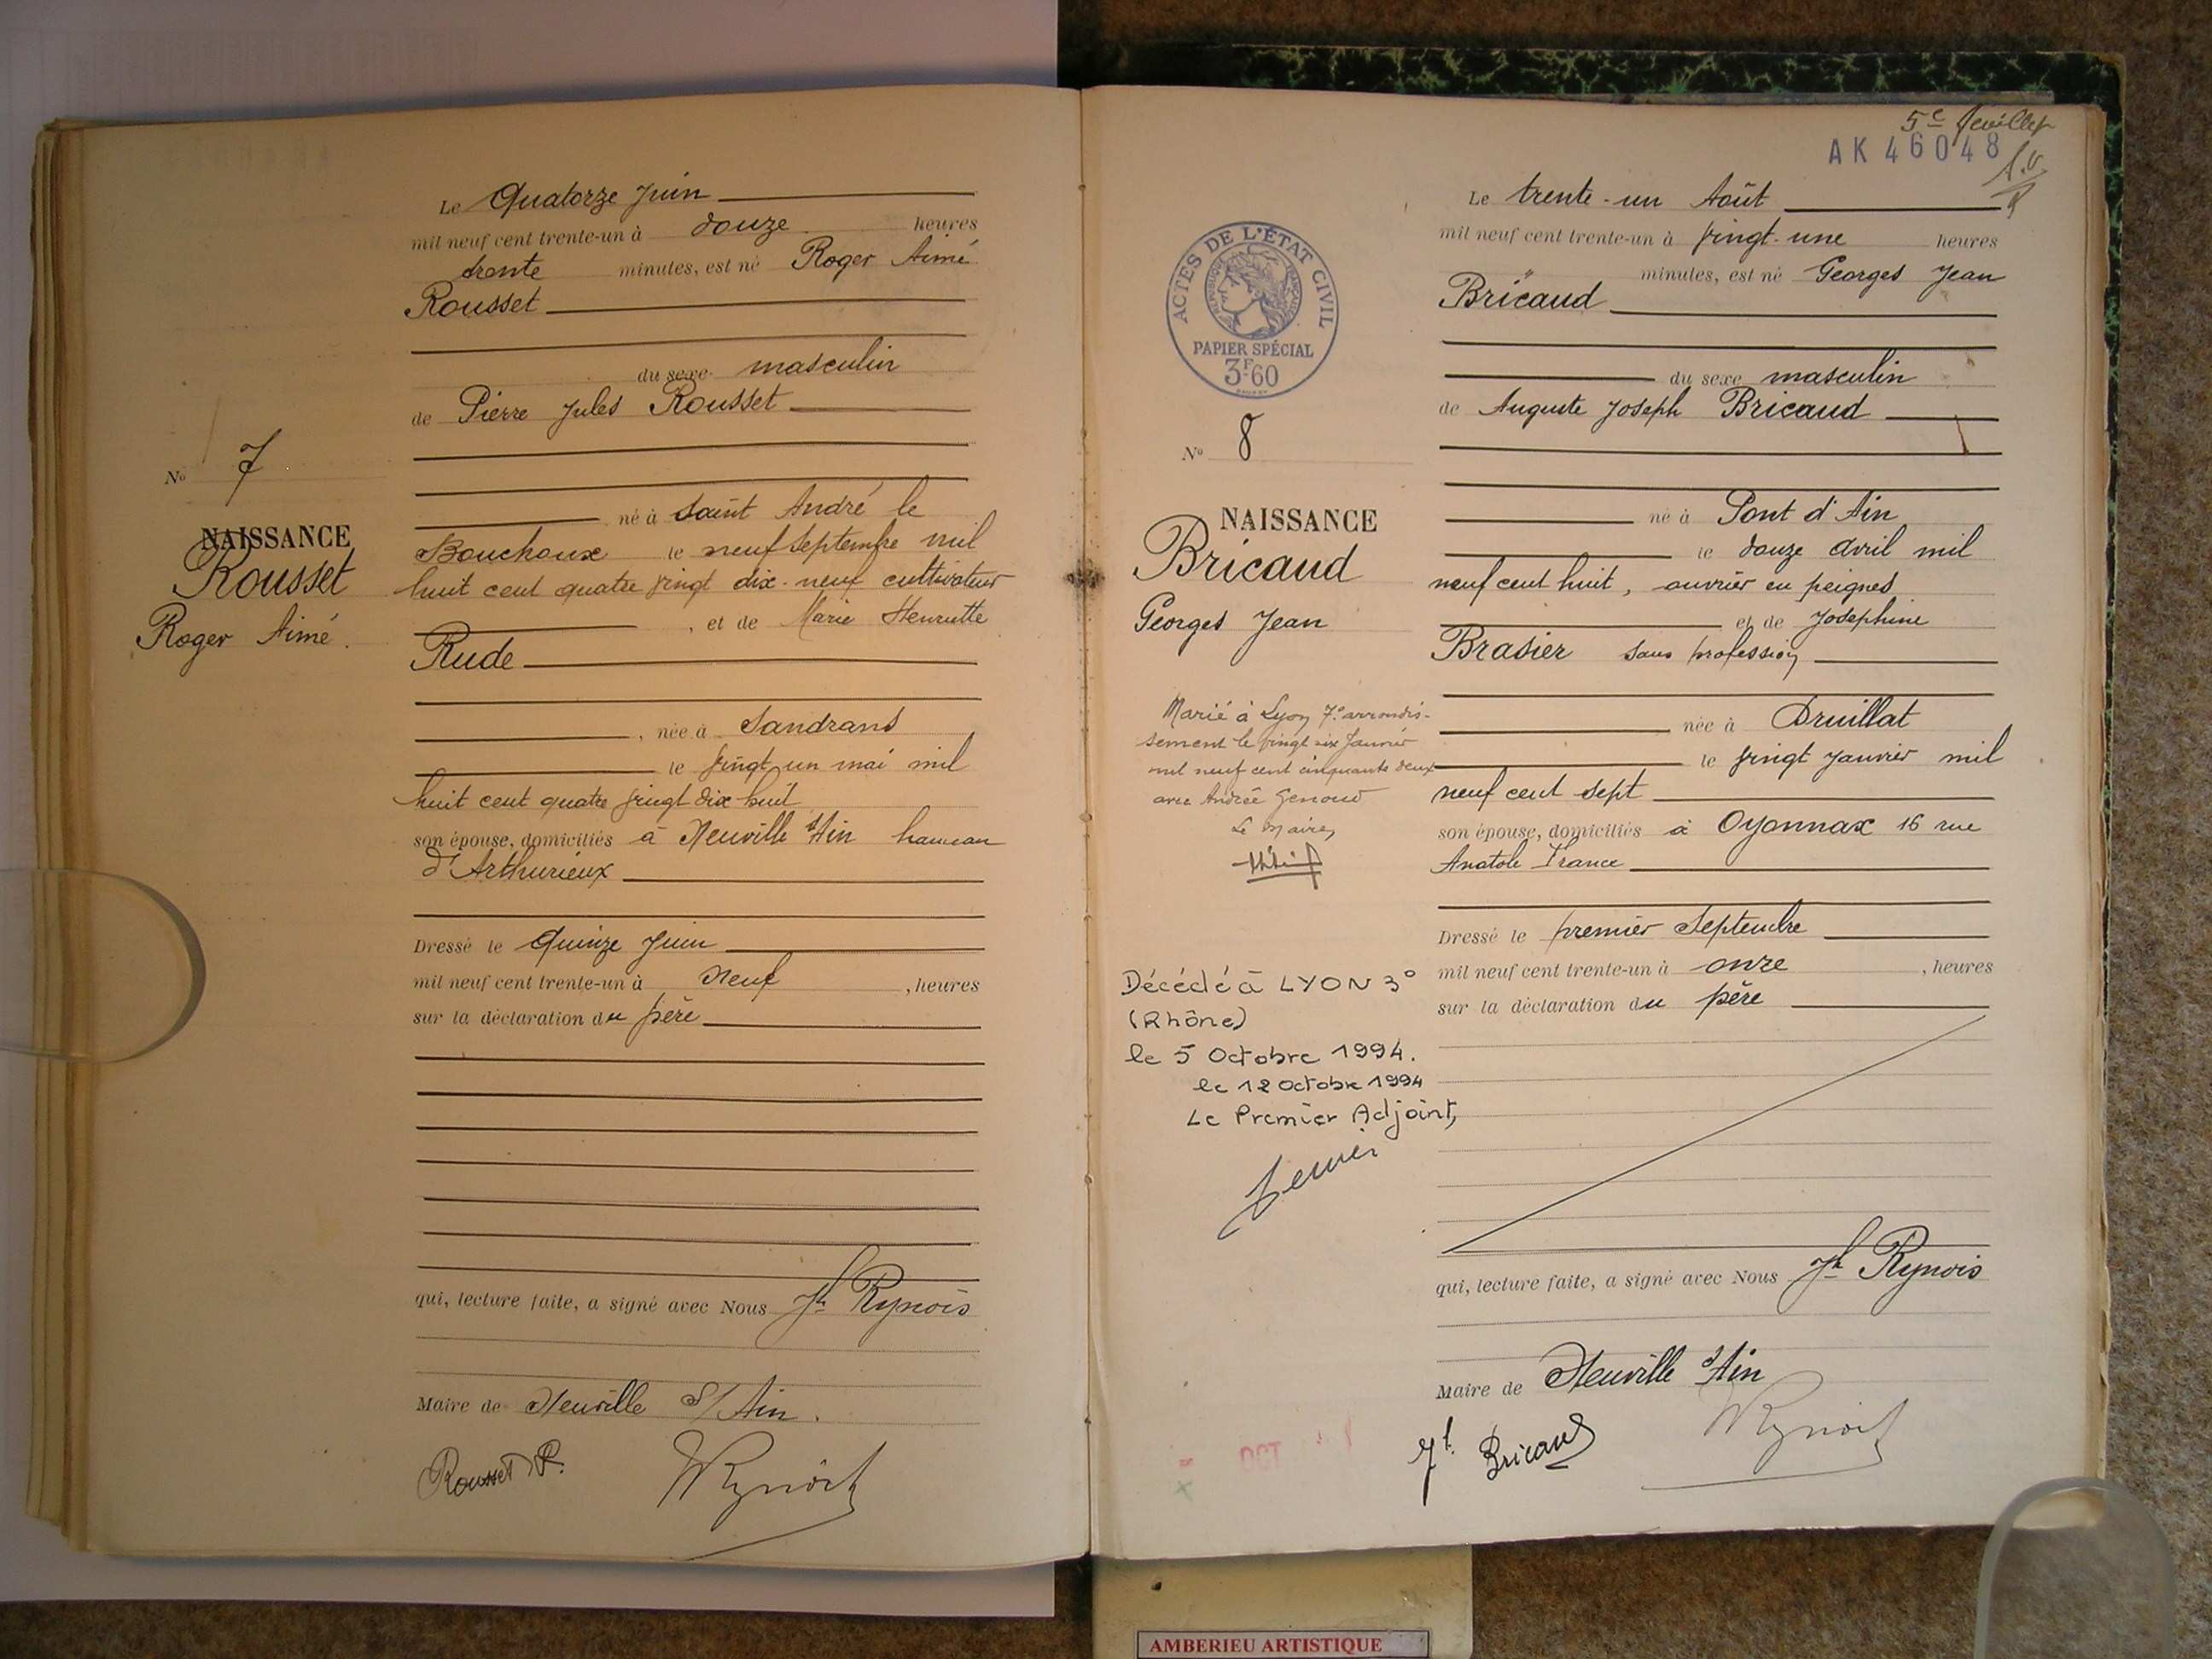 Le Quatorze Juin
mil neuf cent trente-un à douze heures
trente minutes, est né Roger Aimé
Rousset
du sexe masculin
de Pierre Jules Rousset
né à Saint André le
Bouchoux le neuf Septembre mil
huit cent quatre vingt dix-neuf cultivateur
, et de Marie Henriette
Rude
, née à Sandrans
le vingt un mai mil
huit cent quatre vingt dix huit
son épouse, domiciliés à Neuville s/Ain hameau
d'Arthurieux
Dressé le Quinze Juin
mil neuf cent trente-un à Neuf , heures
sur la déclaration du père
qui, lecture faite, a signé avec Nous Jh Rynois
Maire de Neuville S/ Ain.
Rousset P.
No 7
NAISSANCE
Rousset
Roger Aimé.
5e feuillet
AK 46048
Le trente-un Août
mil neuf cent trente-un à vingt-une heures
minutes, est né Georges Jean
Bricaud
du sexe masculin
de Auguste Joseph Bricaud
né à Pont d'Ain
le douze avril mil
neuf cent huit, ouvrier en peignes
et de Joséphine
Brasier sans profession
née à Druillat
le vingt Janvier mil
neuf cent sept
son épouse, domiciliés à Oyonnax 16 rue
Anatole France
Dressé le premier Septembre
mil neuf cent trente-un à onze , heures
sur la déclaration du père
qui, lecture faite, a signé avec Nous Jh Rynois
Maire de Neuville s/Ain
Jh. Bricaud
ACTES DE L'ÉTAT CIVIL
RÉPUBLIQUE FRANÇAISE
PAPIER SPÉCIAL
3F60
No 8
NAISSANCE
Bricaud
Georges Jean
Marié à Lyon 7e arrondis-
sement le vingt six Janvier
mil neuf cent cinquante deux
avec Andrée Genoud
Le Maire,
Décédé à LYON 3°
(Rhône)
le 5 Octobre 1994.
le 12 Octobre 1994
Le Premier Adjoint,
OCT
AMBERIEU ARTISTIQUE